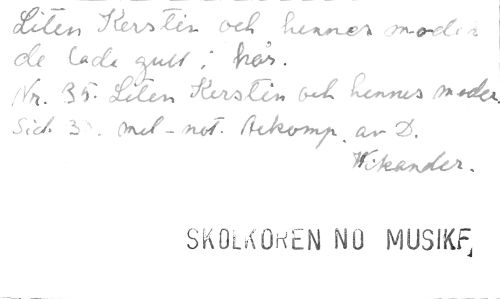 Liten Kerstin och hennes moder
de lade gull i hår.
Nr. 35. Liten Kerstin och hennes moder.
Sid. 3 mel-not. Ackomp. av D.
Wikander.
SKOLKÖREN NO MUSIKF,